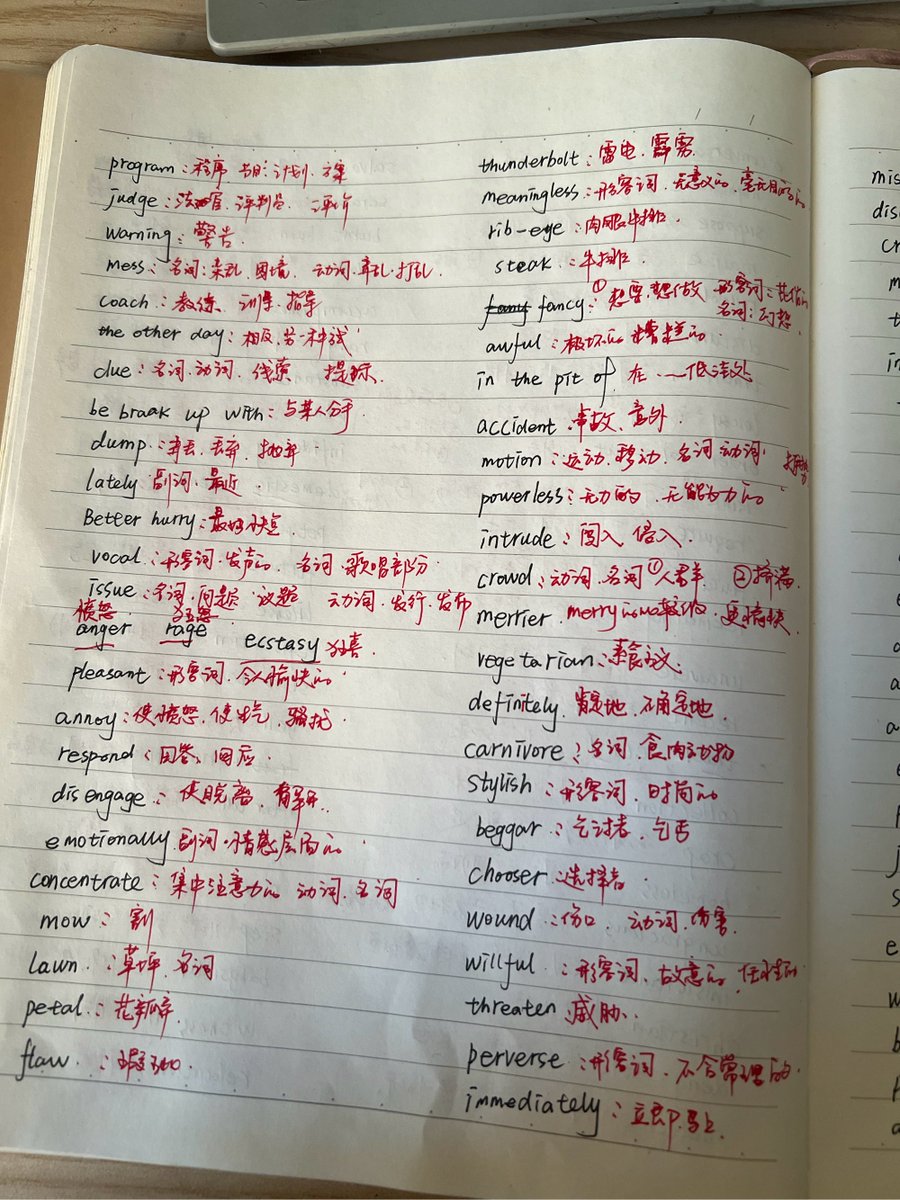 program：程序 节目 计划 方案
judge：法官 评判员 评价
warning：警告
mess：名词：杂乱，困境 动词：弄乱·打乱
coach：教练 训练 指导
the other day：相反，另一种
clue：名词·动词，线索 提示
be braak up with：与某人分手
dump：丢弃 抛弃
lately 副词·最近
Better hurry：最好快点
vocal：形容词·发声的 名词·歌唱部分
issue：名词·问题 议题 动词·发行·发布
愤怒 狂怒
anger rage ecstasy 狂喜
pleasant：形容词，令人愉快的
annoy：使愤怒，使生气，骚扰
respond：回答，回应
disengage：使脱离，解开
emotionally 副词·情感层面的
concentrate：集中注意力的 动词·名词
mow：割
lawn：草坪·名词
petal：花瓣
flaw：瑕疵
thunderbolt：雷电 霹雳
meaningless：形容词，无意义的，毫无目的的
rib-eye：肉眼牛排
steak：牛排
fancy：①想要，想做 形容词：花俏的
名词：幻想
awful：极坏的 糟糕的
in the pit of 在……低洼处
accident 事故、意外
motion：运动·移动·名词 动词·
powerless：无力的，无能为力的
intrude：闯入 侵入
crowd：动词、名词①人群 ②挤满
merrier，merry 比较级，更愉快
vegetarian：素食主义
definitely 肯定地，确定地
carnivore：名词，食肉动物
stylish：形容词，时尚的
beggar：乞讨者，乞丐
chooser：选择者
wound：伤口 动词·伤害
willful：形容词，故意的，任性的
threaten 威胁
perverse：形容词，不合常理的
immediately：立即，马上